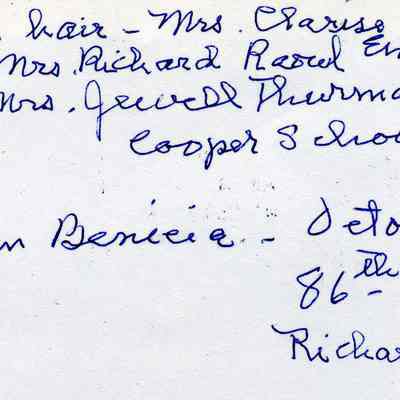 hair - Mrs. Clarise
Mrs. Richard Raoul Em
Mrs. Jewell Thurma
Cooper Schoo
n Benicia - Octo
86th
Richar